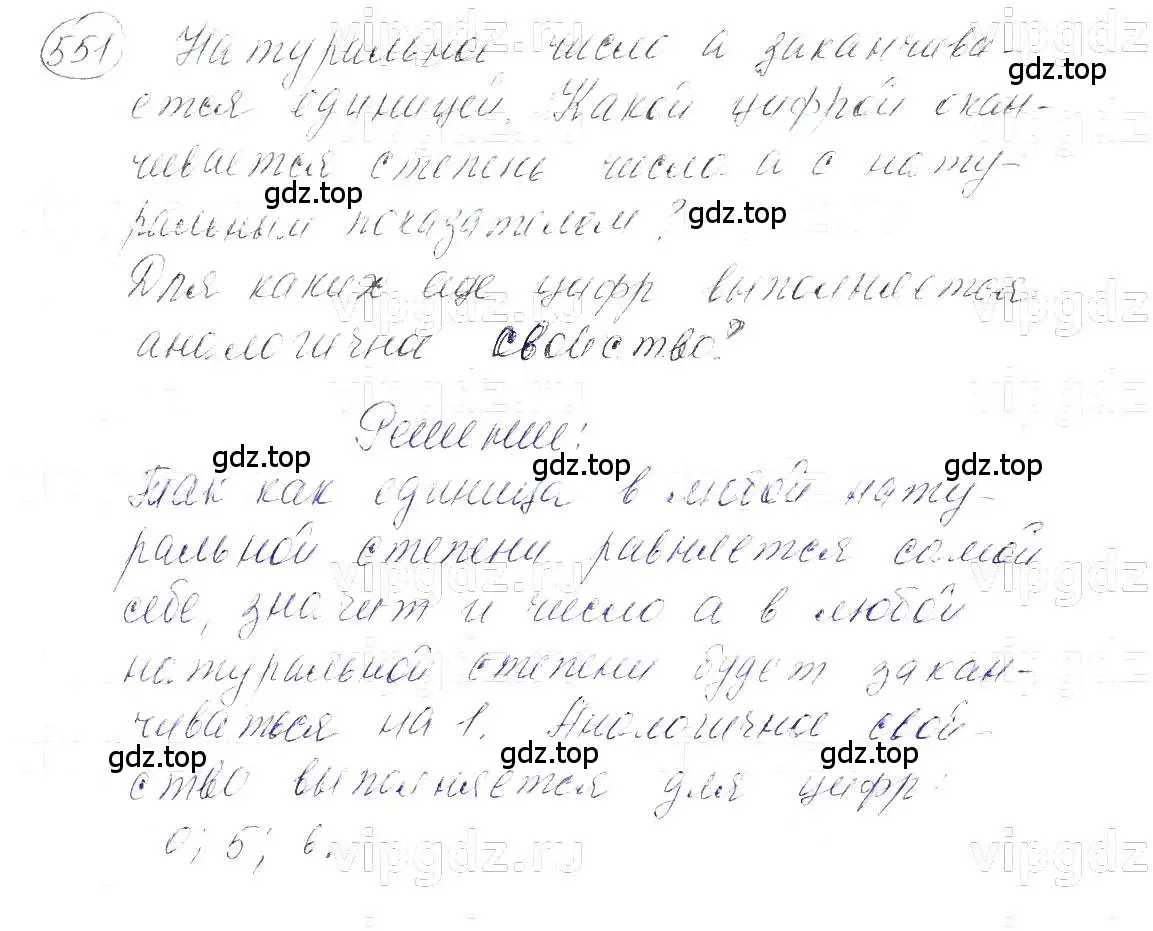 551 Натуральное число а заканчива-
ется единицей. Какой цифрой окан-
чивается степень числа а с нату-
ральным показателем?
Для каких еще цифр выполняется
аналогичное свойство?
Решение:
Так как единица в любой нату-
ральной степени равняется самой
себе, значит и число а в любой
натуральной степени будет закан-
чиваться на 1. Аналогичное свой-
ство выполняется для цифр:
0; 5; 6.
gdz.top
gdz.top
gdz.top
gdz.top
gdz.top
gdz.top
gdz.top
gdz.top
gdz.top
vipgdz.ru
vipgdz.ru
vipgdz.ru
vipgdz.ru
vipgdz.ru
vipgdz.ru
vipgdz.ru